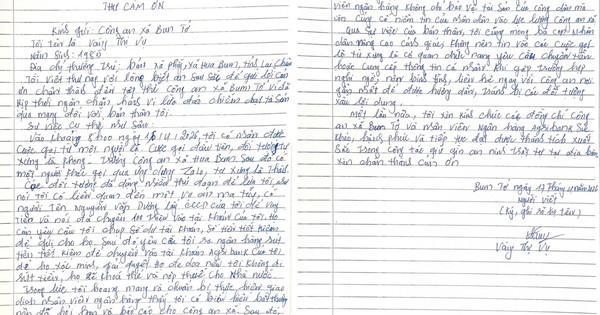 THƯ CẢM ƠN
Kính gửi: Công an xã Bum Tở
Tôi tên là Vàng Thị Vụ
Năm sinh: 1986
Địa chỉ thường trú: bản xà phìn, xã Hua Bum, tỉnh Lai Châu
Tôi viết thư này với lòng biết ơn sâu sắc để gửi lời cảm
ơn chân thành đến tập thể Công an xã Bum Tở vì đã
kịp thời ngăn chặn hành vi lừa đảo chiếm đoạt tài sản
qua mạng đối với bản thân tôi.
Sự việc cụ thể như sau:
Vào khoảng 8 giờ ngày 16/4/2026, tôi có nhận được
cuộc gọi từ một người lạ. Cuộc gọi đầu tiên, đối tượng tự
xưng là phong - Trưởng Công an xã Hua Bum. Sau đó có
một người khác gọi qua ứng dụng Zalo, tự xưng là Thành
Các đối tượng đã dùng nhiều thủ đoạn để lừa tôi,
nói tôi có liên quan đến một vụ án ma túy, có
người tên Nguyễn Văn Dương lấy CCCD của tôi để vay
tiền và nói đã chuyển 100 triệu vào tài khoản của tôi. Họ
còn yêu cầu tôi chụp số dư tài khoản, sổ tiền tiết kiệm
để gửi cho họ. Sau đó yêu cầu tôi ra ngân hàng rút
tiền tiết kiệm để chuyển vào tài khoản Agribank của tôi
để họ xác minh, giải quyết. Họ đe dọa nếu tôi không đi
rút tiền, họ sẽ khóa thẻ và nộp thuế cho Nhà nước.
Trong lúc tôi hoang mang và chuẩn bị thực hiện giao
dịch nhân viên ngân hàng thấy tôi có biểu hiện bất thường
nên đã hỏi han và báo cáo cho công an xã. Sau đó,
viên ngân hàng không chỉ bảo vệ tài sản của công dân mà
còn củng cố niềm tin của nhân dân vào lực lượng Công an xã.
Qua sự việc của bản thân, tôi cũng mong bà con nhân
dân nâng cao cảnh giác, không nên tin vào các cuộc gọi
lạ tự xưng là cơ quan chức năng yêu cầu chuyển tiền
hoặc cung cấp thông tin cá nhân. Khi gặp trường hợp
nghi ngờ nên bình tĩnh, liên hệ ngay với công an nơi
gần nhất để được hướng dẫn, tránh bị các đối tượng
xấu lợi dụng.
Một lần nữa, tôi xin kính chúc các đồng chí Công
an xã Bum Tở và nhân viên ngân hàng Agribank sức
khỏe, hạnh phúc và tiếp tục đạt được thành tích xuất
sắc trong công tác giữ gìn an ninh trật tự tại địa bàn.
Xin chân thành cảm ơn
Bum Tở ngày 17 tháng 4 năm 2026
Người viết
(Ký, ghi rõ họ tên)
Vàng Thị Vụ